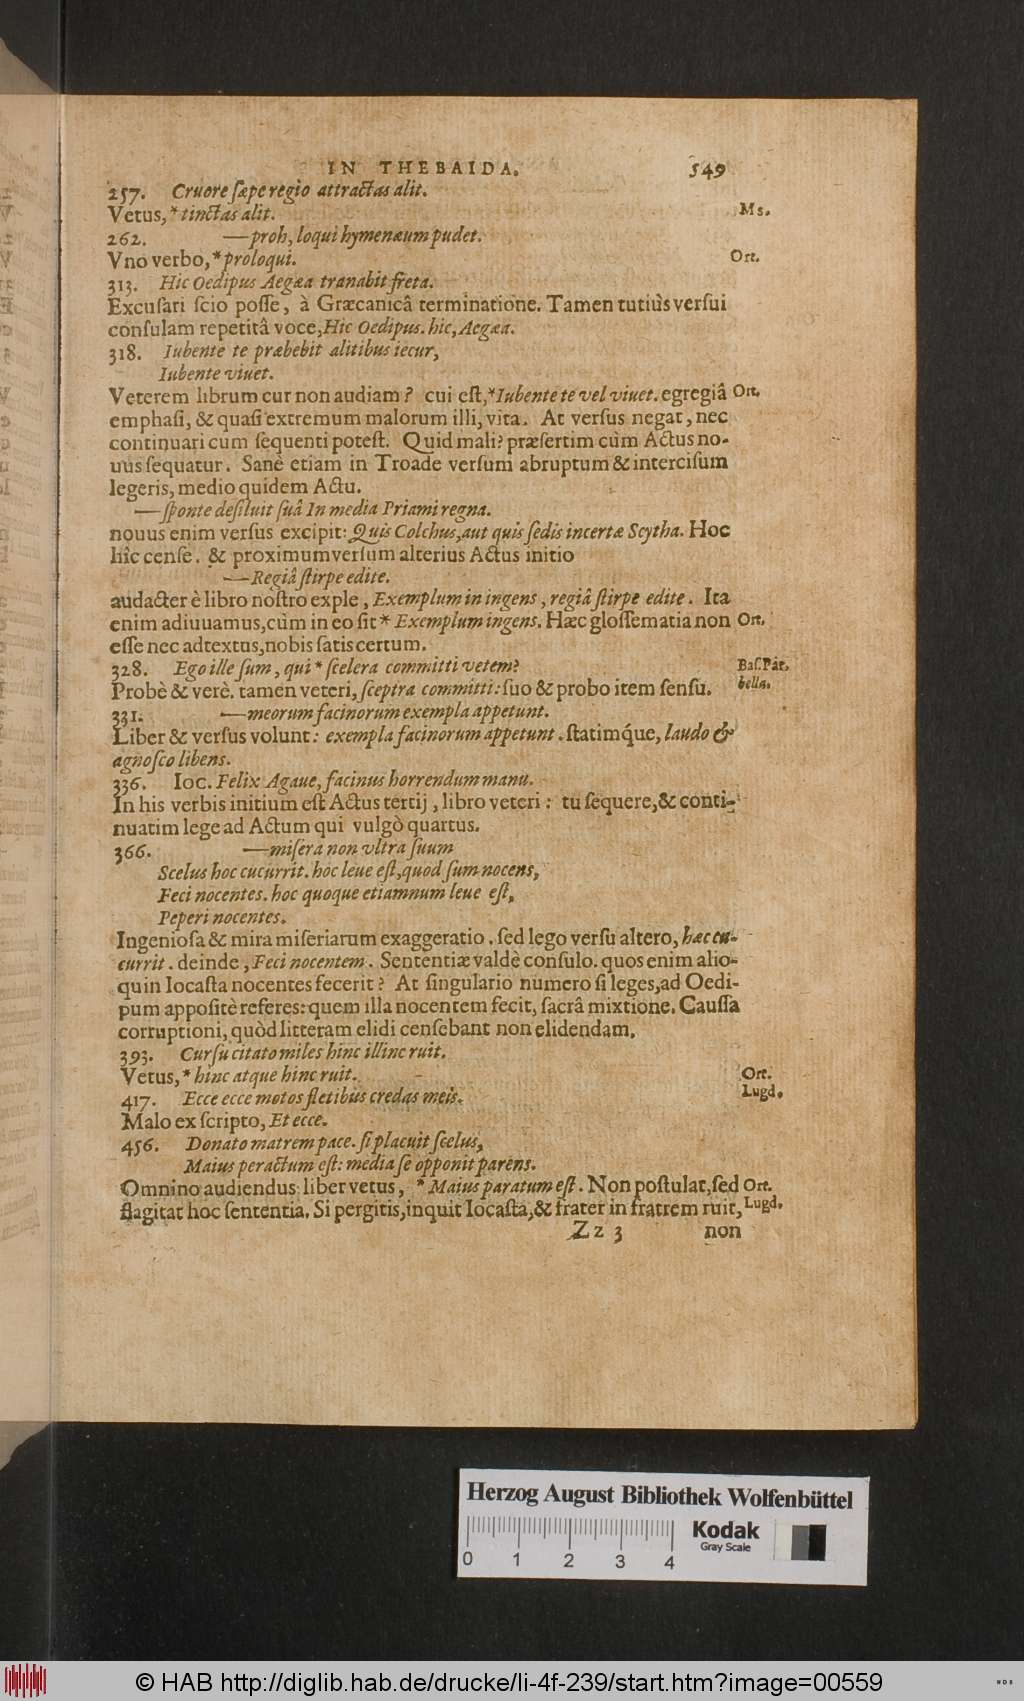 IN THEBAIDA. 549
257. Cruore sæpe regio attractas alit.
Vetus, * tinctas alit. Ms.
262. —proh, loqui hymenæum pudet.
Vno verbo, * proloqui. Ort.
313. Hic Oedipus Aegæa tranabit freta.
Excusari scio posse, à Græcanicâ terminatione. Tamen tutiùs versui
consulam repetitâ voce, Hic Oedipus. hic, Aegæa.
318. Iubente te præbebit alitibus iecur,
Iubente viuet.
Veterem librum cur non audiam? cui est, * Iubente te vel viuet. egregiâ Ort.
emphasi, & quasi extremum malorum illi, vita. At versus negat, nec
continuari cum sequenti potest. Quid mali? præsertim cùm Actus no-
uus sequatur. Sanè etiam in Troade versum abruptum & intercisum
legeris, medio quidem Actu.
—sponte desiluit suâ In media Priami regna.
nouus enim versus excipit: Quis Colchus, aut quis sedis incertæ Scytha. Hoc
hîc cense. & proximum versum alterius Actus initio
—Regiâ stirpe edite.
audacter è libro nostro exple, Exemplum in ingens, regiâ stirpe edite. Ita
enim adiuuamus, cùm in eo sit * Exemplum ingens. Hæc glossematia non Ort.
esse nec adtextus, nobis satis certum.
328. Ego ille sum, qui * scelera committi vetem? Bas. Par.
Probè & verè. tamen veteri, sceptra committi: suo & probo item sensu. bella.
331. —meorum facinorum exempla appetunt.
Liber & versus volunt: exempla facinorum appetunt. statimq́ue, laudo &
agnosco libens.
336. Ioc. Felix Agaue, facinus horrendum manu.
In his verbis initium est Actus tertij, libro veteri: tu sequere, & conti-
nuatim lege ad Actum qui vulgò quartus.
366. —misera non vltra suum
Scelus hoc cucurrit. hoc leue est, quod sum nocens,
Feci nocentes. hoc quoque etiamnum leue est,
Peperi nocentes.
Ingeniosa & mira miseriarum exaggeratio. sed lego versu altero, hæc cu-
currit. deinde, Feci nocentem. Sententiæ valdè consulo. quos enim alio-
quin Iocasta nocentes fecerit? At singulario numero si leges, ad Oedi-
pum appositè referes: quem illa nocentem fecit, sacrâ mixtione. Caussa
corruptioni, quòd litteram elidi censebant non elidendam.
393. Cursu citato miles hinc illinc ruit.
Vetus, * hinc atque hinc ruit. Ort.
417. Ecce ecce motos fletibus credas meis. Lugd.
Malo ex scripto, Et ecce.
456. Donato matrem pace. si placuit scelus,
Maius peractum est: media se opponit parens.
Omnino audiendus liber vetus, * Maius paratum est. Non postulat, sed Ort.
flagitat hoc sententia. Si pergitis, inquit Iocasta, & frater in fratrem ruit, Lugd.
Zz 3 non
Herzog August Bibliothek Wolfenbüttel
Kodak
Gray Scale
0 1 2 3 4
© HAB http://diglib.hab.de/drucke/li-4f-239/start.htm?image=00559